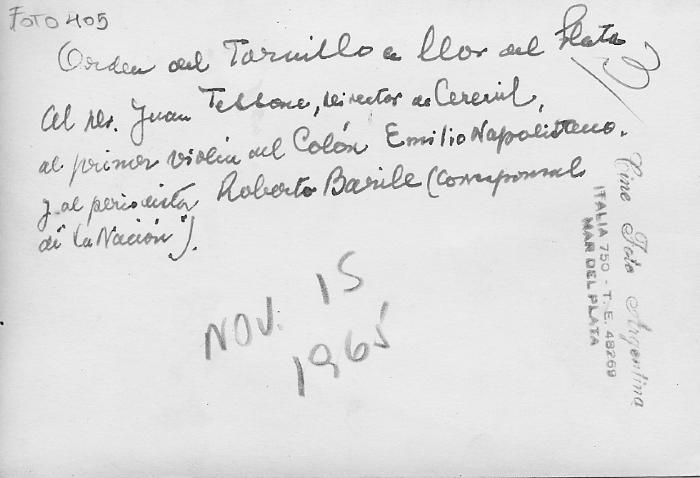 FOTO 405
Orden del Tornillo a Mar del Plata
Al Sr. Juan Tessone, director de
al primer violín del Colón Emilio Napolitano.
y al periodista Roberto Barile (corresponsal
de "La Nación").
NOV. 15
1965
Cine Foto Argentina
ITALIA 750 - T. E. 48269
MAR DEL PLATA